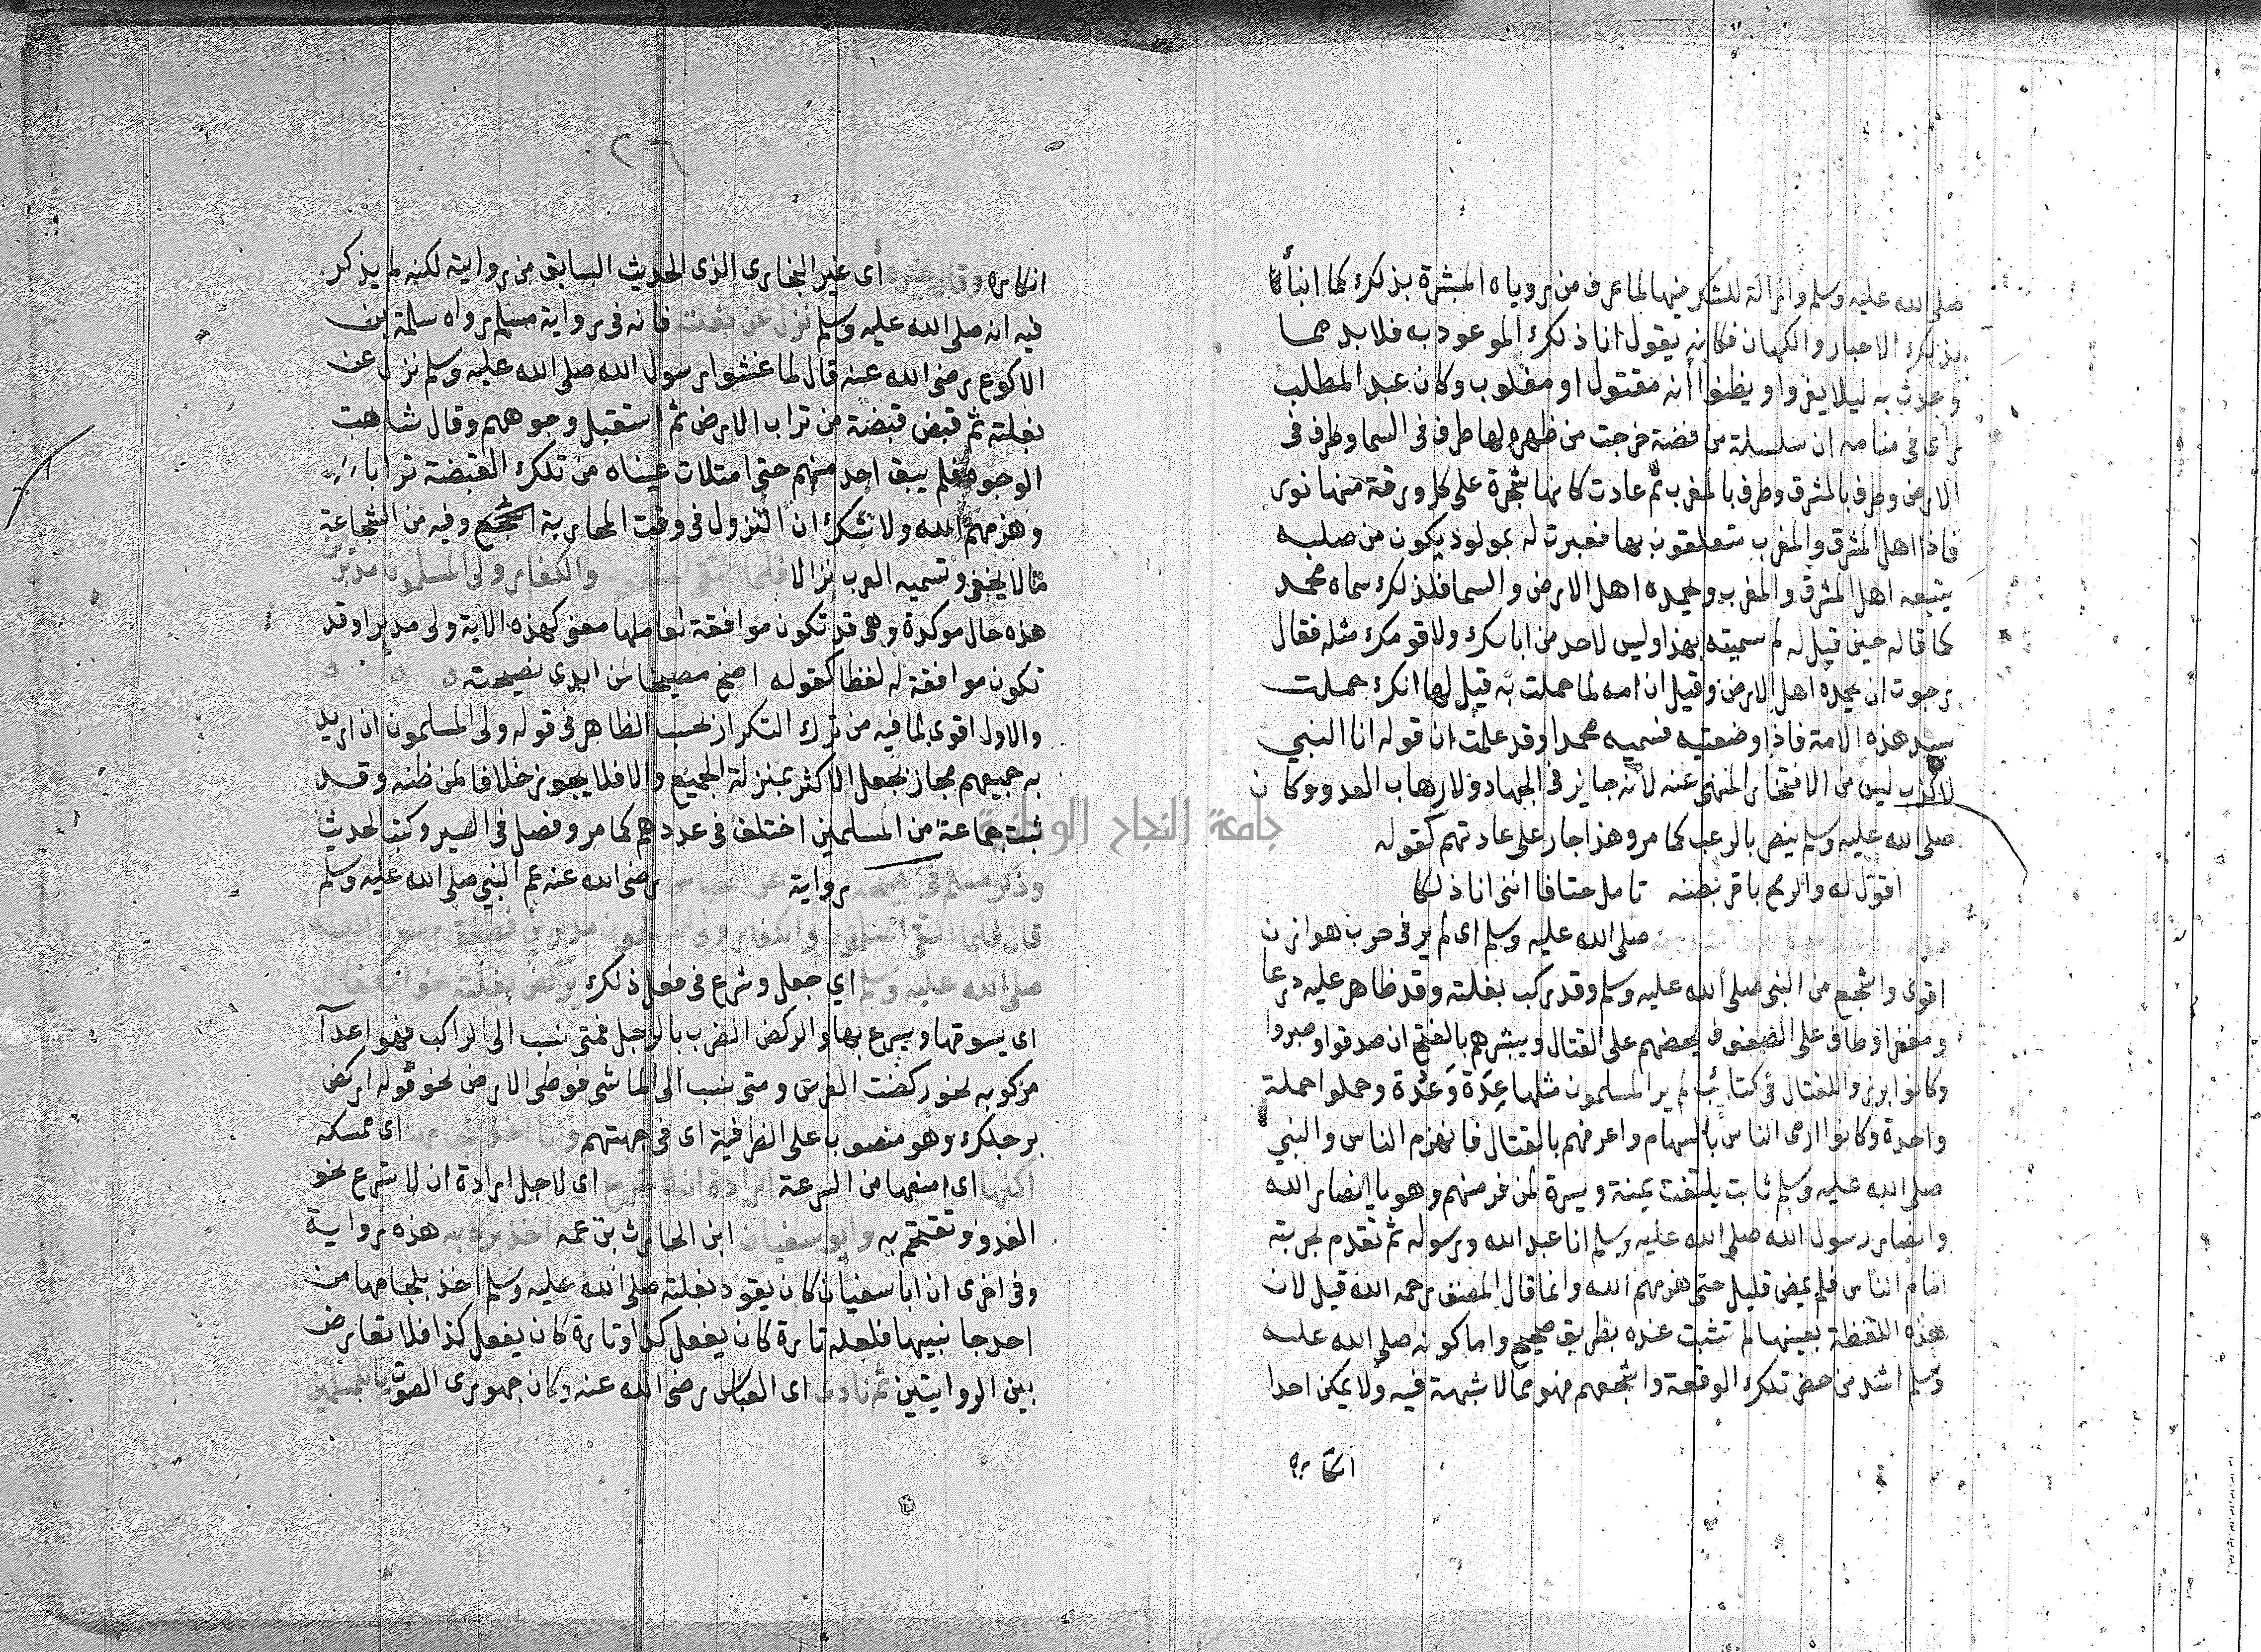 صلى الله عليه وسلم وازالة للشك منها لما عرف من روياه المبشرة بذلك كما انبأ
بذلك الاحبار والكهان فكانه يقول انا ذلك الموعود به فلا بد مما
وعدت به ليلا يفروا ويظنوا أنه مقتول او مغلوب وكان عبد المطلب
راى فى منامه ان سلسلة من فضة خرجت من ظهره لها طرف فى السما وطرف فى
الارض وطرف بالمشرق وطرف بالمغرب ثم عادت كانها شجرة على كل ورقة منها نور
فاذا اهل المشرق والمغرب متعلقون بها فعبرت له بمولود يكون من صلبه
يتبعه اهل المشرق والمغرب ويحمده اهل الارض والسما فلذلك سماه محمد
كما قاله حين قيل له لم سميته بهذا وليس لاحد من ابائك ولا قومك مثله فقال
رجوت ان يحمده اهل الارض وقيل ان امه لما حملت به قيل لها انك حملت
سيد هذه الامة فاذا وضعتيه فسميه محمدا وقد علمت ان قوله انا النبي
لا كذب ليس من الافتخار المنهى عنه لانه جايز فى الجهاد ولارهاب العدو وكان
صلى الله عليه وسلم ينصر بالرعب كما مر وهذا جار على عادتهم كقوله
اقول له والرمح ياقر بطنه تامل خفافا اننى انا ذلكا
صلى الله عليه وسلم اى لم ير فى حرب هوازن
اقوى واشجع من النبى صلى الله عليه وسلم وقد ركب بغلته وقد ظاهر عليه درعا
ومغفرا وطاف على الصفوف يحضهم على القتال ويبشرهم بالفتح ان صدقوا وصبروا
وكانوا برزوا للقتال فى كتائب لم ير المسلمون مثلها عدة وعدة وحملوا حملة
واحدة وكانوا ارمى الناس بالسهام واعرفهم بالقتال فانهزم الناس والنبي
صلى الله عليه وسلم ثابت يلتفت يمنة ويسرة لمن فر منهم وهو يا انصار الله
وانصار رسول الله صلى الله عليه وسلم انا عبد الله ورسوله ثم تقدم بحربته
امام الناس فلم يمض قليل حتى هزمهم الله وانما قال المصنف رحمه الله قيل لان
هذه اللفظة بعينها لم تثبت عنده بطريق صحيح واما كونه صلى الله عليه
وسلم اشد من حضر تلك الوقعة واشجعهم فهو مما لا شبهة فيه ولا يمكن احدا
انكاره
٢٦
انكاره وقال غيره أى غير البخارى الذى الحديث السابق من روايته لكنه لم يذكر
فيه انه صلى الله عليه وسلم نزل عن بغلته فانه فى رواية مسلم رواه سلمة بن
الاكوع رضى الله عنه قال لما غشوا رسول الله صلى الله عليه وسلم نزل عن
بغلته ثم قبض قبضة من تراب الارض ثم استقبل وجوههم وقال شاهت
الوجوه فلم يبق احد منهم حتى امتلات عيناه من تلك القبضة ترابا
وهزمهم الله ولا شك ان النزول فى وقت المحاربة اشجع وفيه من الشجاعة
ما لا يخفى وتسميه العرب نزالا فلما التقى المسلمون والكفار ولى المسلمون مدبرين
هذه حال موكدة وهى قد تكون موافقة لعاملها معنى كهذه الاية ولى مدبرا وقد
تكون موافقة له لفظا كقوله اصخ مصيخا لمن ابدى نصيحته
والاول اقوى لما فيه من ترك التكرار بحسب الظاهر فى قوله ولى المسلمون ان اريد
به جميعهم مجاز بجعل الاكثر بمنزلة الجميع والا فلا يجوز خلافا لمن ظنه وقد
ثبت جماعة من المسلمين اختلف فى عددهم كما مر وفصل فى السير وكتب الحديث
وذكر مسلم فى صحيحه رواية عن العباس رضى الله عنه عم النبي صلى الله عليه وسلم
قال فلما التقى المسلمون والكفار ولى المسلمون مدبرين فطفق رسول الله
صلى الله عليه وسلم اي جعل وشرع فى فعل ذلك يركض بغلته نحو الكفار
اى يسوقها ويسرع بها والركض الضرب بالرجل فمتى نسب الى الراكب فهو اعدآ
مركوبه نحو ركضت الفرس ومتى نسب الى الماشى فوطى الارض نحو قوله اركض
برجلك وهو منصوب على الظرفية اى فى جهتهم وانا اخذ بلجامها اى ممسكه
اكفها اى امنعها من السرعة ارادة ان لا تسرع اى لاجل ارادة ان لا تسرع نحو
العدو وتقتحم به وابو سفيان ابن الحارث بن عمه اخذ بركابه هذه رواية
وفى اخرى ان ابا سفيان كان يقود بغلته صلى الله عليه وسلم اخذ بلجامها من
احد جانبيها فلعله تارة كان يفعل كذا وتارة كان يفعل كذا فلا تعارض
بين الروايتين ثم نادى اى العباس رضى الله عنه وكان جهورى الصوت يا للمسلمين
جامعة النجاح الوطنية